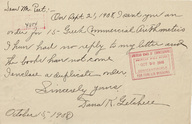 Dear Mr. Peet:-
On Sept. 25, 1908, I sent you an
order for 15 - Good Commercial Arithmetics
I have had no reply to my letter and
the books have not come.
I enclose a duplicate order.
Sincerely yours,
October 5, 1908